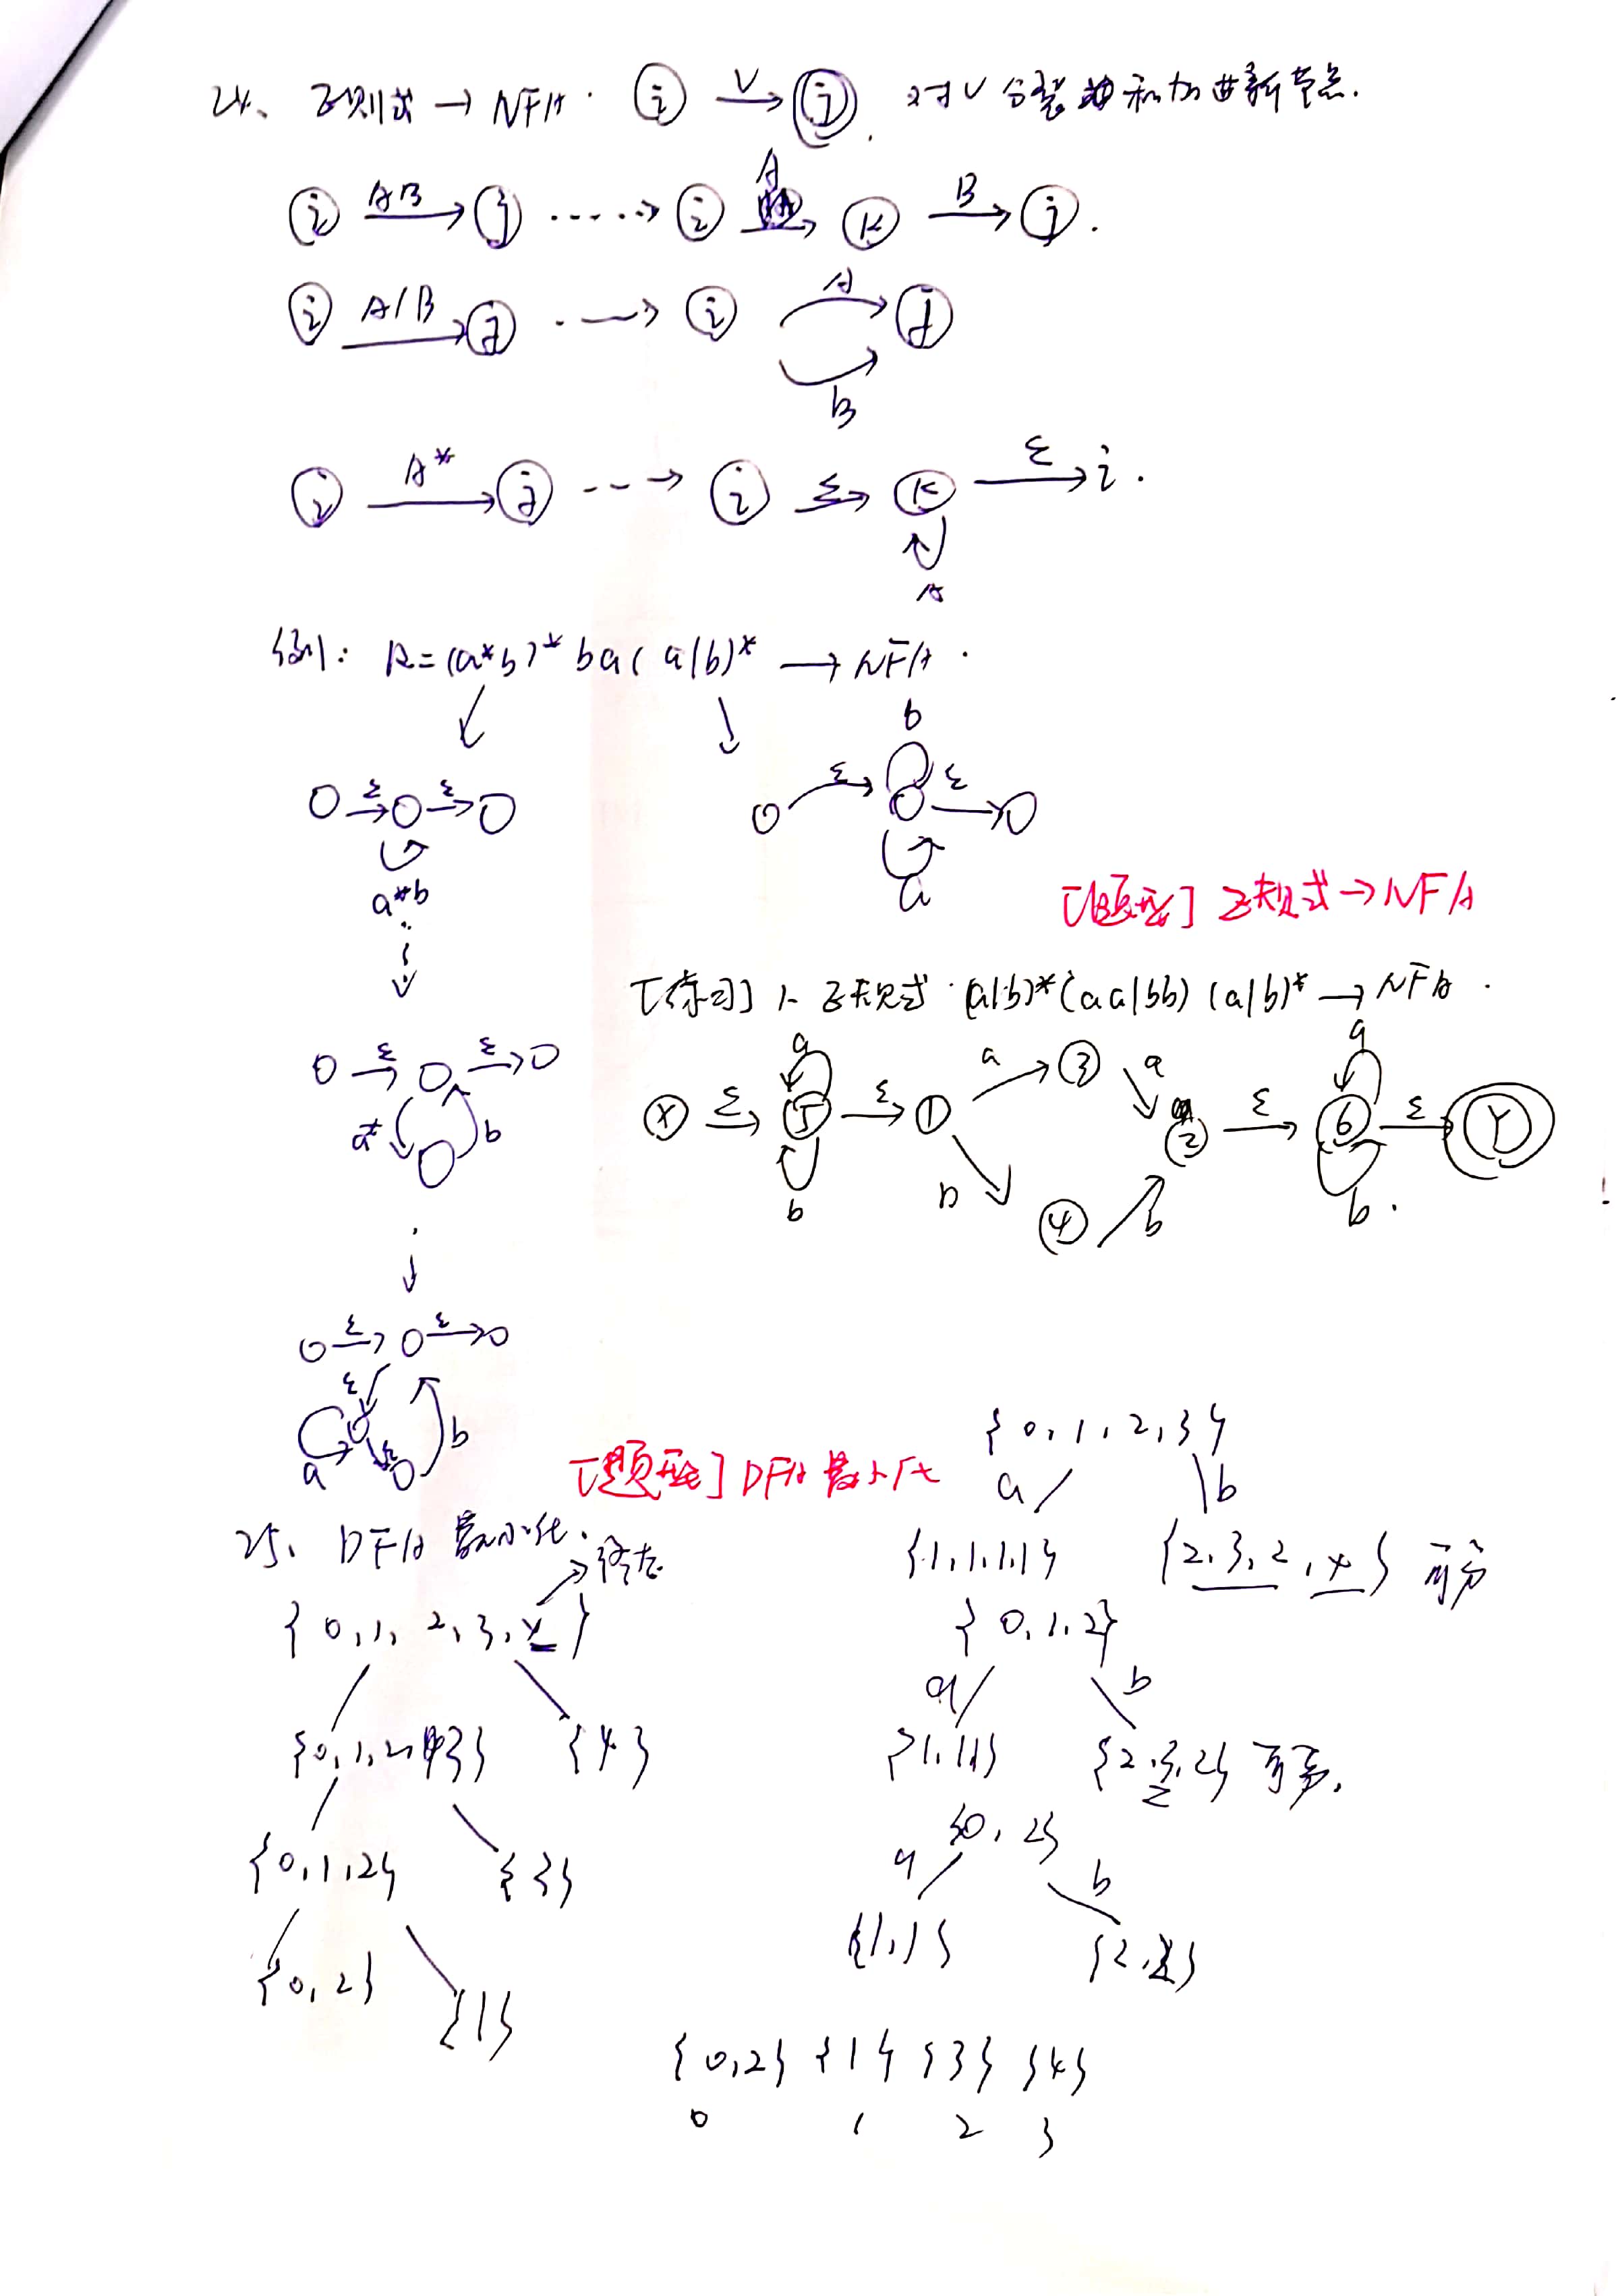 24、正则式 → NFA. i V→ j. 对V分裂和加进新节点.
i AB→ j ····> i A→ K B→ j.
i A|B→ j ·--> i A B j
i A*→ j ---> i ε→ K ε→ i.
A
例: R=(a*b)* ba(a|b)* → NFA.
b
ε ε
ε ε
a
a*b
[题型] 正规式→NFA
[练习] 1. 正规式 (a|b)*(aa|bb)(a|b)* → NFA.
ε ε
a* b
X ε 5 ε 1 a 3 a 2 ε 6 ε Y
a a
b b 4 b b.
ε ε
ε
a b
[题型] DFA最小化
{0,1,2,3}
a b
25、DFA最小化. 终态
{1,1,1,1} {2,3,2,4} 可分
{0,1,2,3,4}
{0,1,2}
a b
{0,1,2,3} {4}
{1,1,1} {2,3,2} 可分.
{0,2}
{0,1,2} {3}
a b
{1,1} {2,2}
{0,2} {1}
{0,2} {1} {3} {4}
0 1 2 3